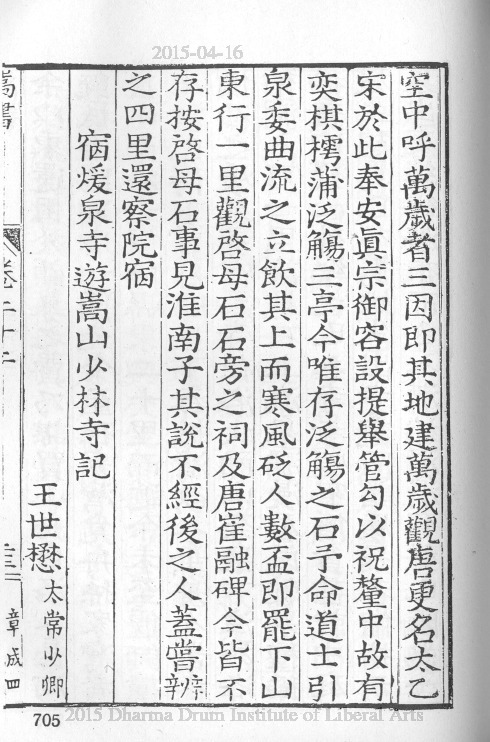 2015-04-16
空中呼萬歲者三因即其地建萬歲觀唐更名太乙
宋於此奉安眞宗御容設提舉管勾以祝釐中故有
奕棋樗蒲泛觴三亭今唯存泛觴之石予命道士引
泉委曲流之立飲其上而寒風砭人數盃即罷下山
東行一里觀啓母石石旁之祠及唐崔融碑今皆不
存按啓母石事見淮南子其說不經後之人蓋嘗辨
之四里還察院宿
宿煖泉寺遊嵩山少林寺記
王世懋太常少卿
嵩書
卷二十二
章成四
705
2015 Dharma Drum Institute of Liberal Arts